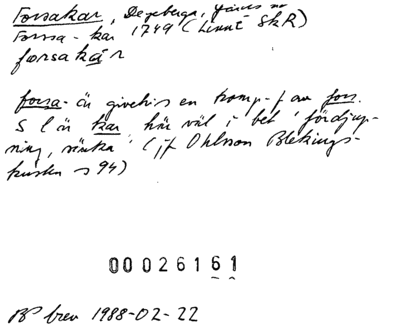 Forsakar, Degeberga, Gärds hd
Forssa-kar 1749 (Linné SkR)
forsakár
forsa- är givetvis en komp-f av fors.
S l är kar, här väl i bet 'fördjup-
ning, sänka' (jf Ohlsson Blekings-
kusten s 94)
00026161
BP brev 1988-02-22